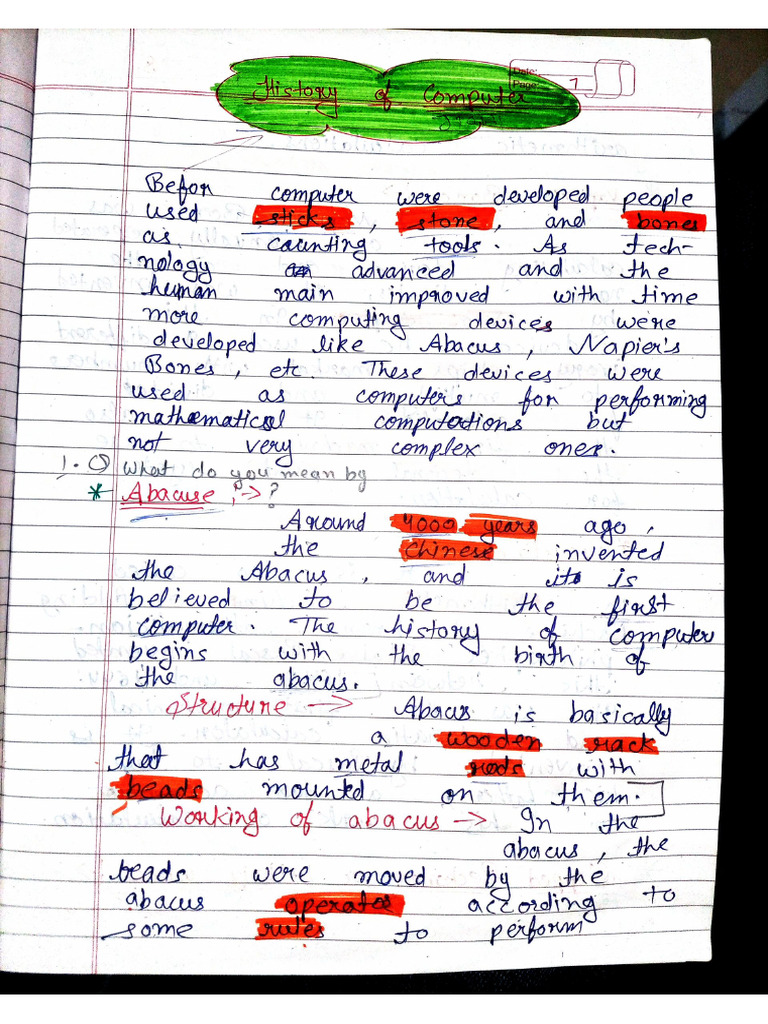 Date:
Page: 1
History of Computer
Befor computer were developed people
used sticks, stone, and bones
as counting tools. As tech-
nology advanced and the
human main improved with time
more computing devices were
developed like Abacus, Napier's
Bones, etc. These devices were
used as computers for performing
mathematical computations but
not very complex ones.
1. Q What do you mean by
* Abacuse ; → ?
Around 4000 years ago,
the Chinese invented
the Abacus, and it is
believed to be the first
computer. The history of computer
begins with the birth of
the abacus.
Structure → Abacus is basically
a wooden rack
that has metal rods with
beads mounted on them.
Working of abacus → In the
abacus, the
beads were moved by the
abacus operator according to
some rules to perform